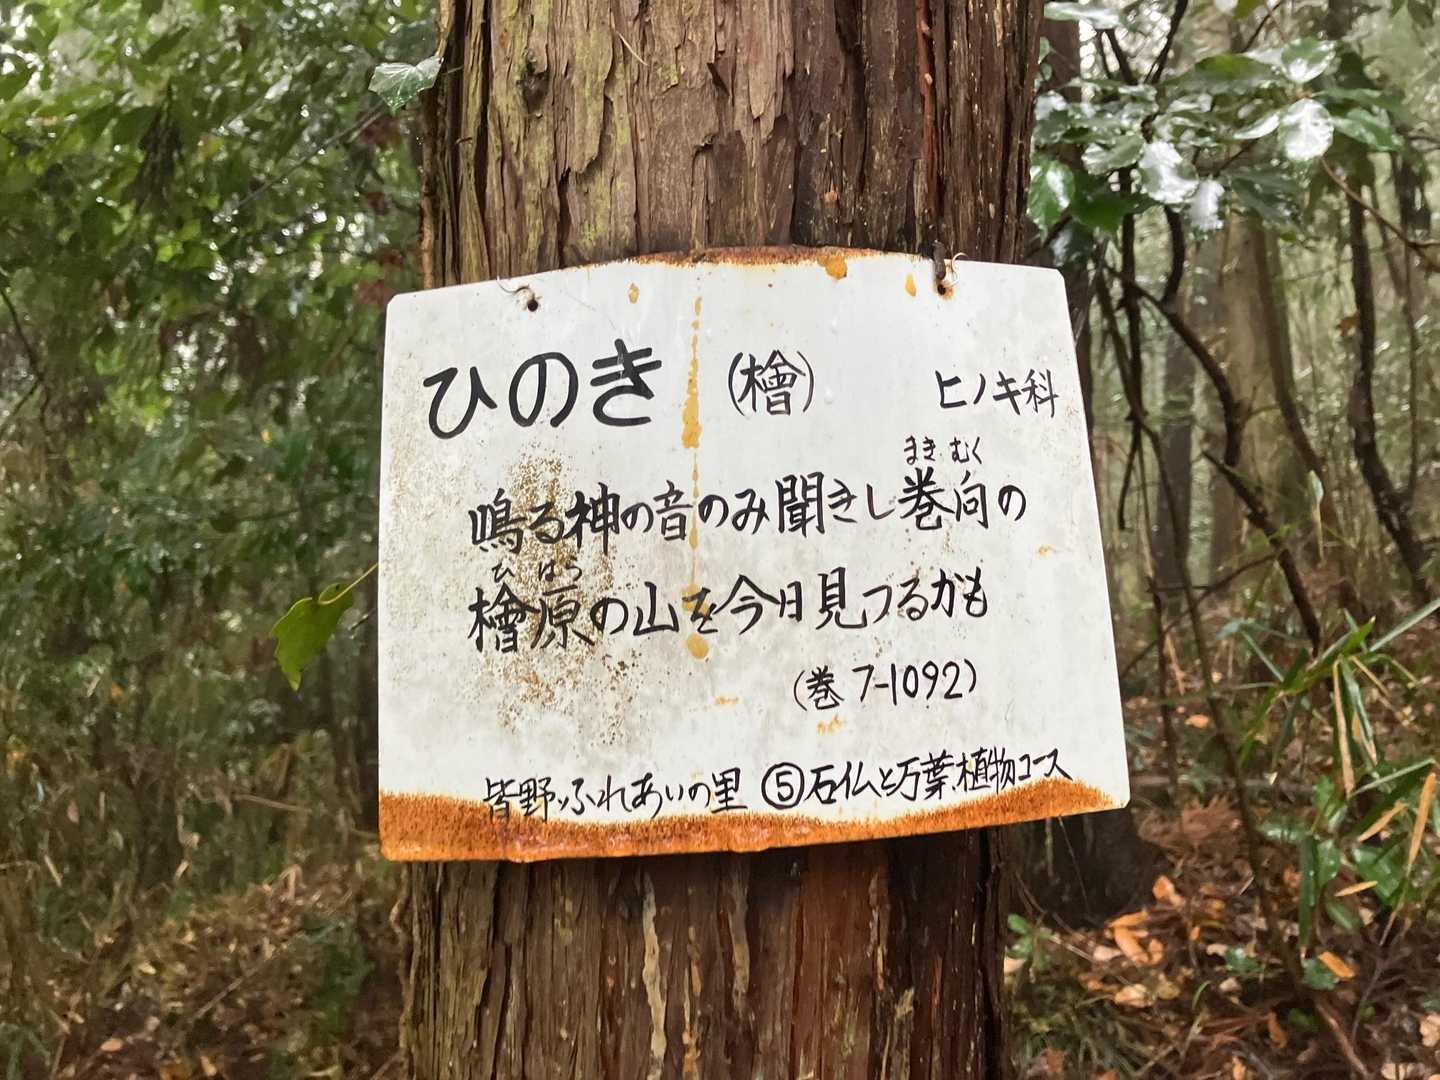 ひのき (檜) ヒノキ科
まきむく
鳴る神の音のみ聞きし巻向の
ひばら
檜原の山を今日見つるかも
(巻7-1092)
皆野ふれあいの里 ⑤石仏と万葉植物コース